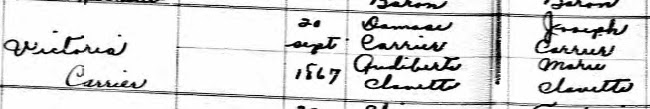 Baron Baron
20 Damase Joseph
Victoria sept. Carrier Carrier
Carrier 1867 Audiberte Marie
Clavette Clavette